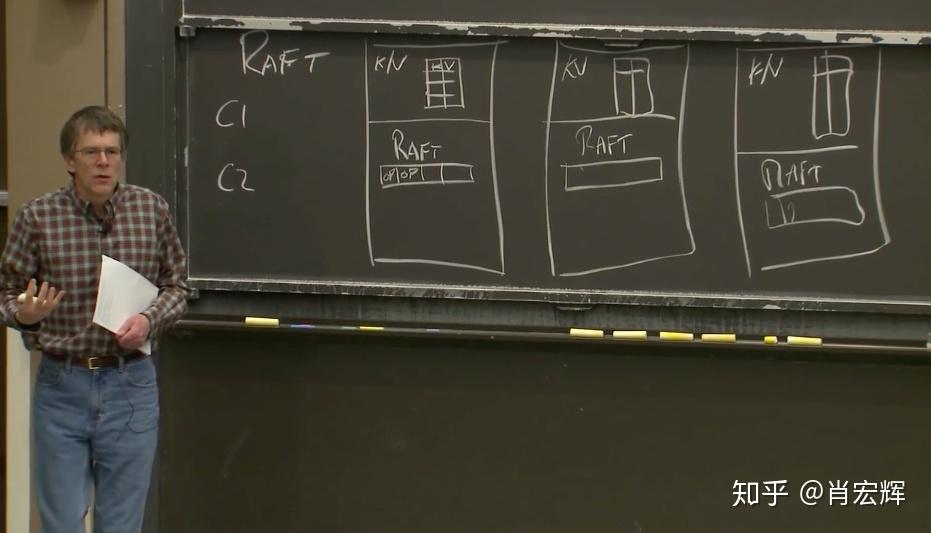 RAFT
C1
C2
K/V
KV
RAFT
OP OP
KV
RAFT
K/V
RAFT
知乎 @肖宏辉